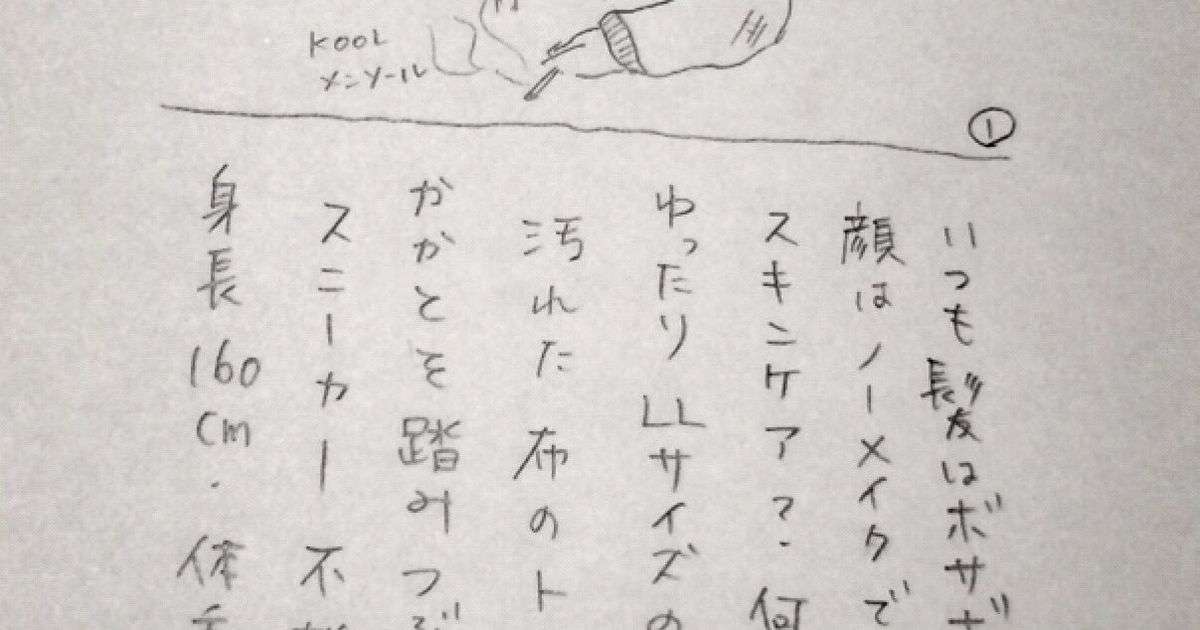 KOOL
メンソール
①
いつも髪はボサボ
顔はノーメイクで
スキンケア？何
ゆったりLLサイズの
汚れた布のト
かかとを踏みつぶ
スニーカー 不
身長160cm. 体